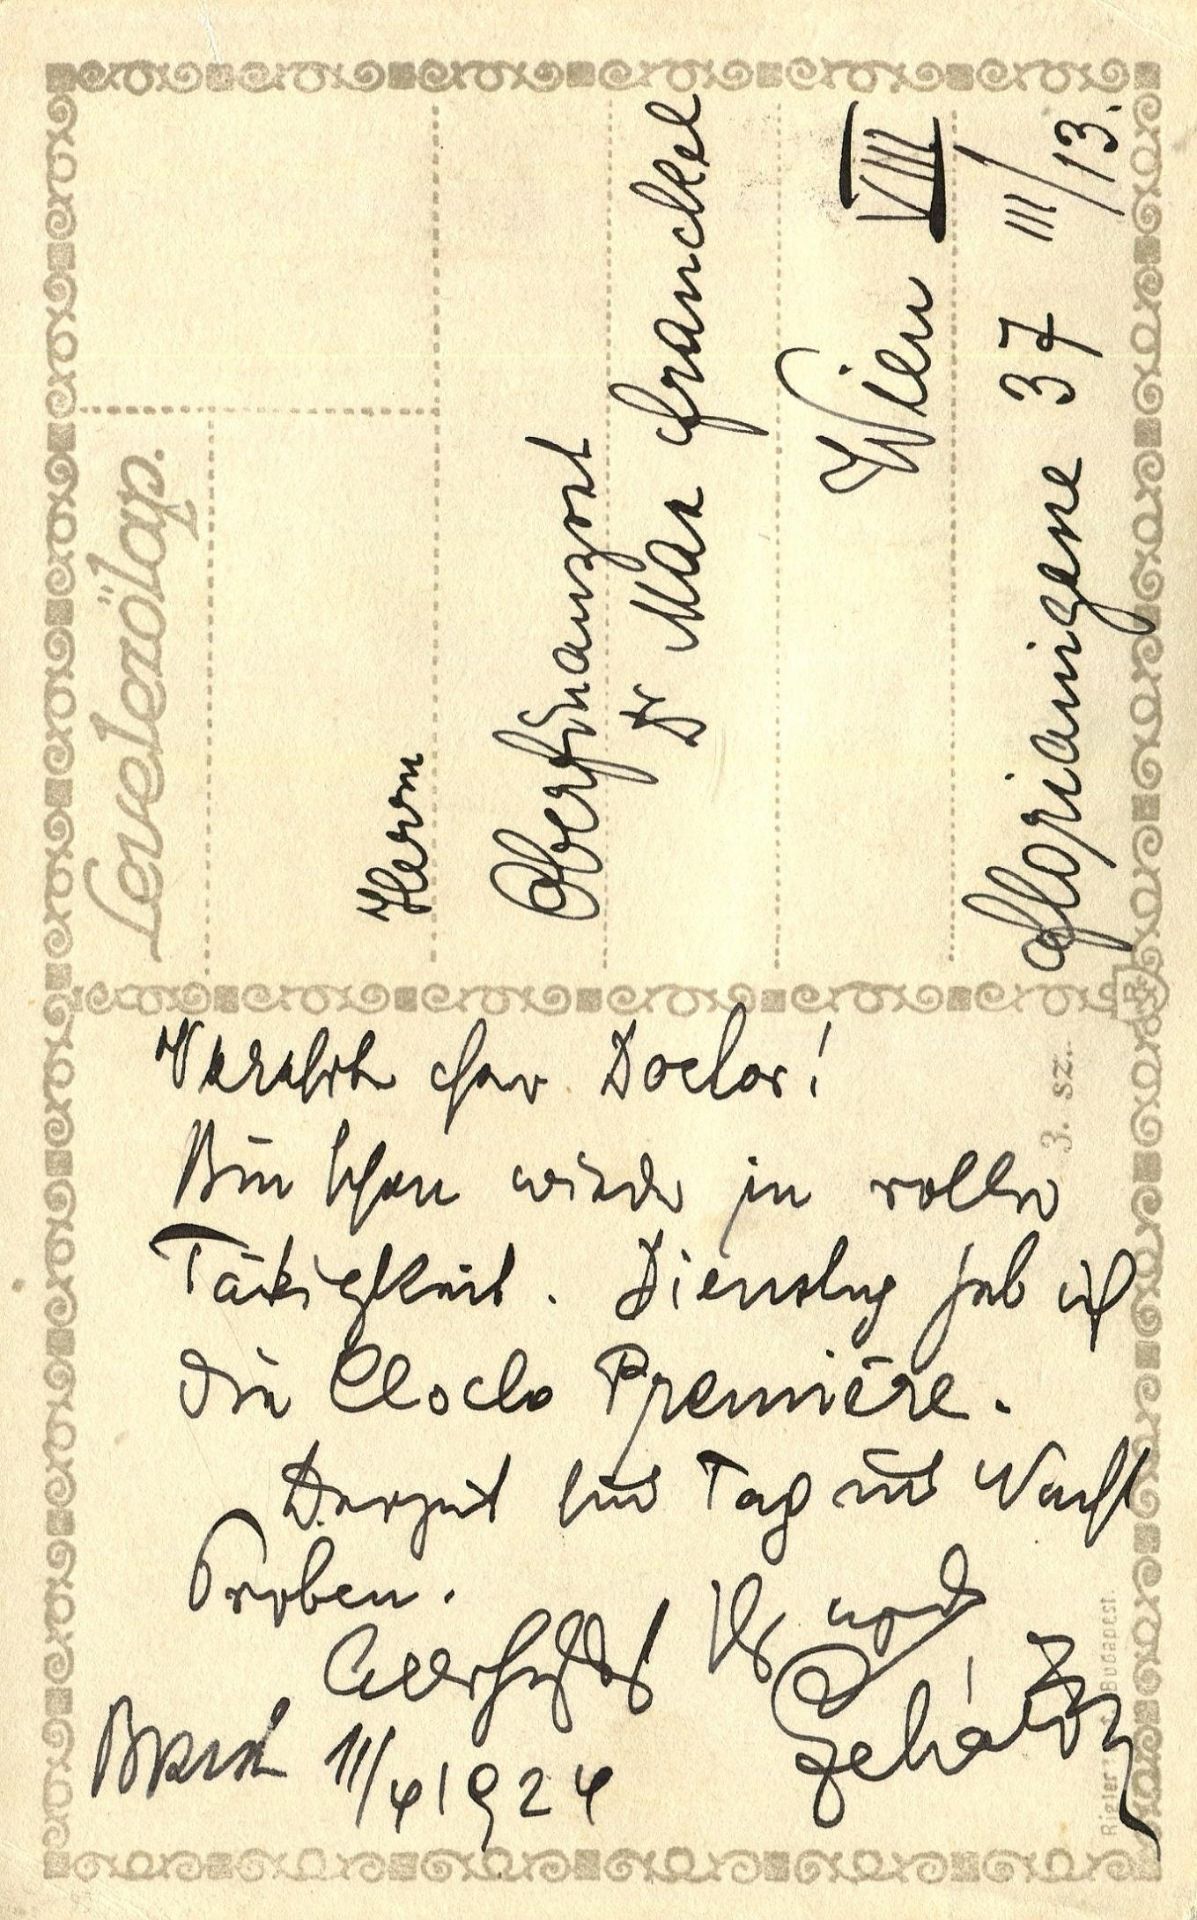 Levelezőlap.
Herrn
Oberfinanzrat
Dr Max Franckel
Wien VIII
Florianigasse 37 III/13.
3. sz.
Verehrter Herr Doctor!
Bin schon wieder in voller
Tätigkeit. Dienstag hab ich
die Cloclo Première.
Derzeit sind Tag und Nacht
Proben.
Allerherzlichst Ihr
Lehár
11/4 1924
Rigler Budapest